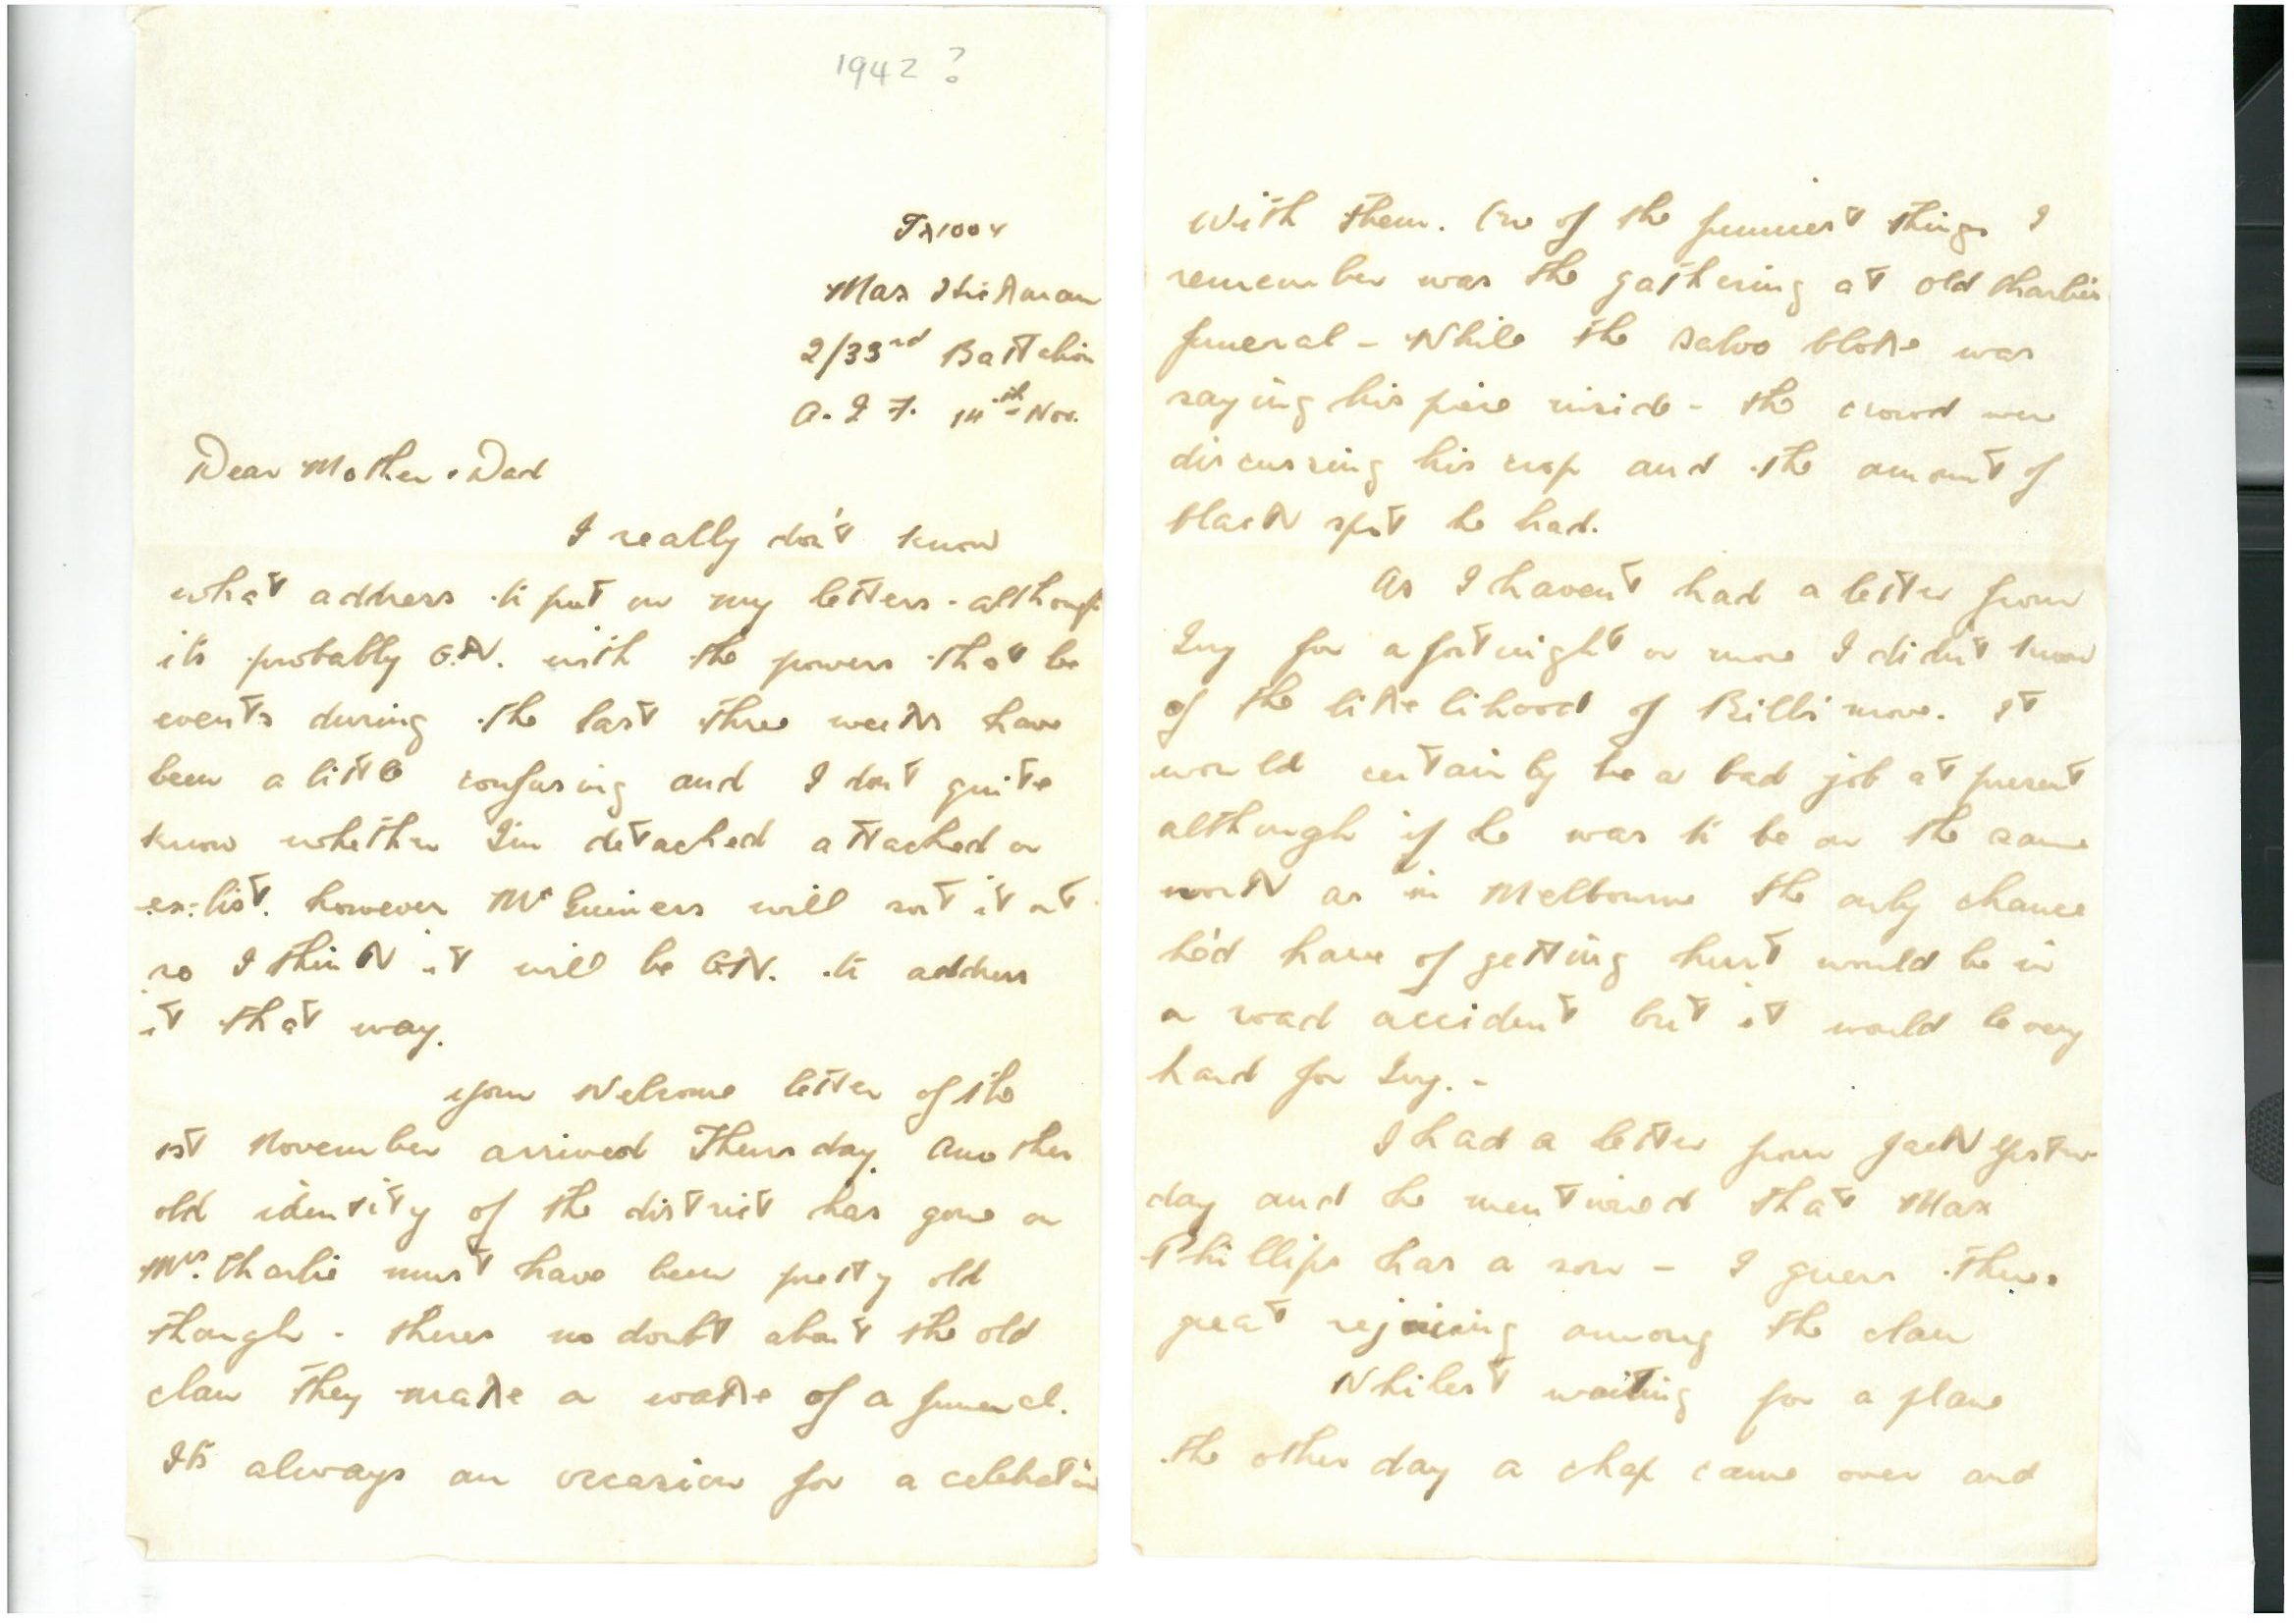 1942 ?
TX1004
Max Hickman
2/33rd Battalion
A.I.F. 14th Nov.
Dear Mother & Dad
I really don't know
what address to put on my letters - although
its probably O.K. with the powers that be
events during the last three weeks have
been a little confusing and I don't quite
know whether I'm detached attached or
ex-list. however Mr Guiness will sort it out
so I think it will be O.K. to address
it that way.
Your Welcome letter of the
1st November arrived Thursday. Another
old identity of the district has gone on
Mrs. Charlie must have been pretty old
though - theres no doubt about the old
clan they make a wake of a funeral.
Its always an occasion for a celebration
With them. One of the funniest things I
remember was the gathering at old Charlies
funeral - While the Salvo bloke was
saying his piece inside - the crowd were
discussing his crop and the amount of
black spot he had.
As I havent had a letter from
Ivy for a fortnight or more I didn't know
of the likelihood of Bills move. It
would certainly be a bad job at present
although if he was to be on the same
work as in Melbourne the only chance
he'd have of getting hurt would be in
a road accident but it would be very
hard for Ivy. -
I had a letter from Jack yester-
day and he mentioned that Max
Phillips has a son - I guess theres
great rejoicing among the clan
Whilest waiting for a plane
the other day a chap came over and